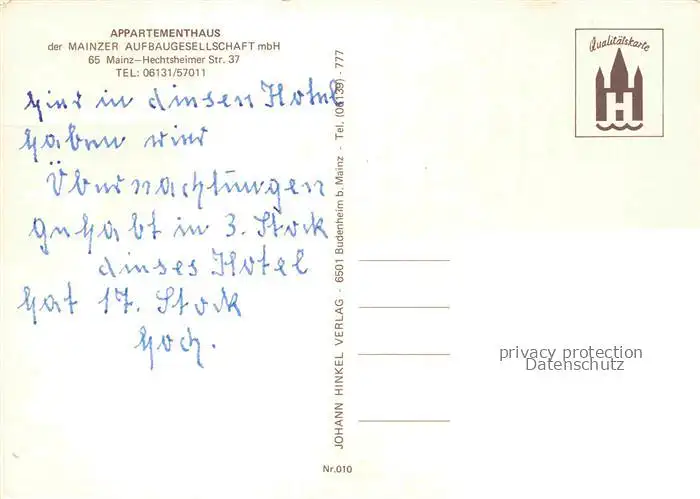 APPARTEMENTHAUS
der MAINZER AUFBAUGESELLSCHAFT mbH
65 Mainz-Hechtsheimer Str. 37
TEL: 06131/57011
hier in diesen Hotel
haben wier
Übernachtungen
gehabt in 3. Stock
dieses Hotel
hat 17. Stock
hoch.
JOHANN HINKEL VERLAG - 6501 Budenheim b. Mainz - Tel. (06139) - 777
Nr.010
Qualitätskarte
H
privacy protection
Datenschutz